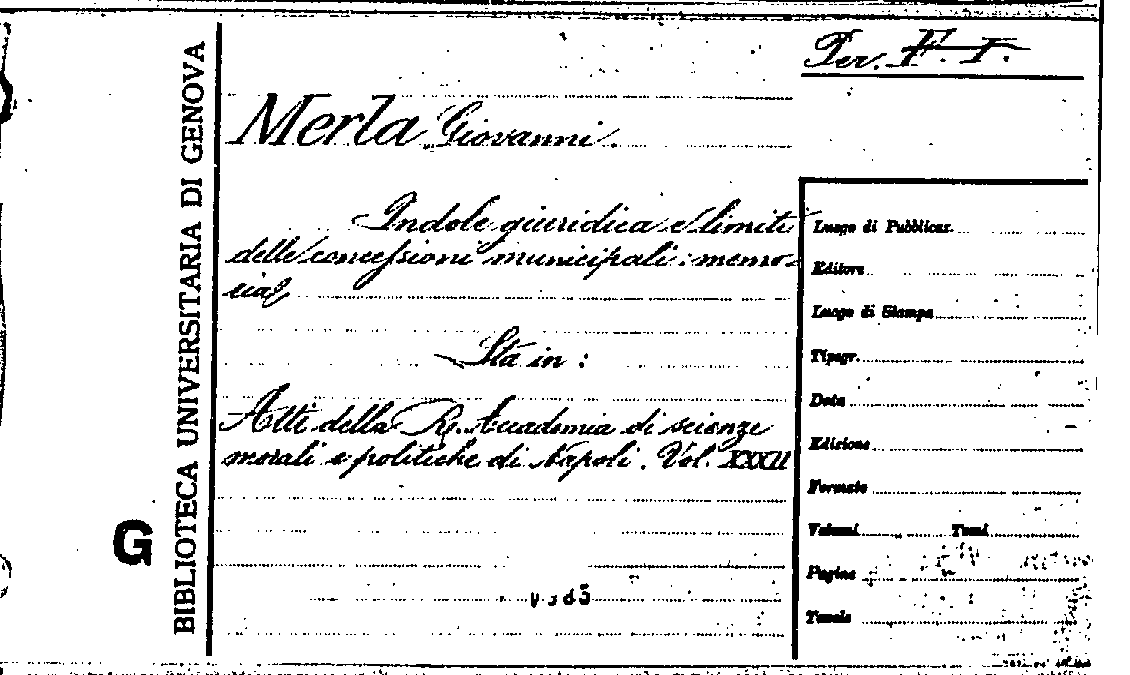 Per. F. I.
Merla Giovanni.
Indole giuridica e limiti
delle concessioni municipali: memo-
ria
Sta in:
Atti della R. Accademia di scienze
morali e politiche di Napoli. Vol. XXXII
BIBLIOTECA UNIVERSITARIA DI GENOVA
G
Luogo di Pubblicaz.
Editore
Luogo di Stampa
Tipogr.
Data
Edizione
Formato
Volumi Tomi
Pagine
Tavole